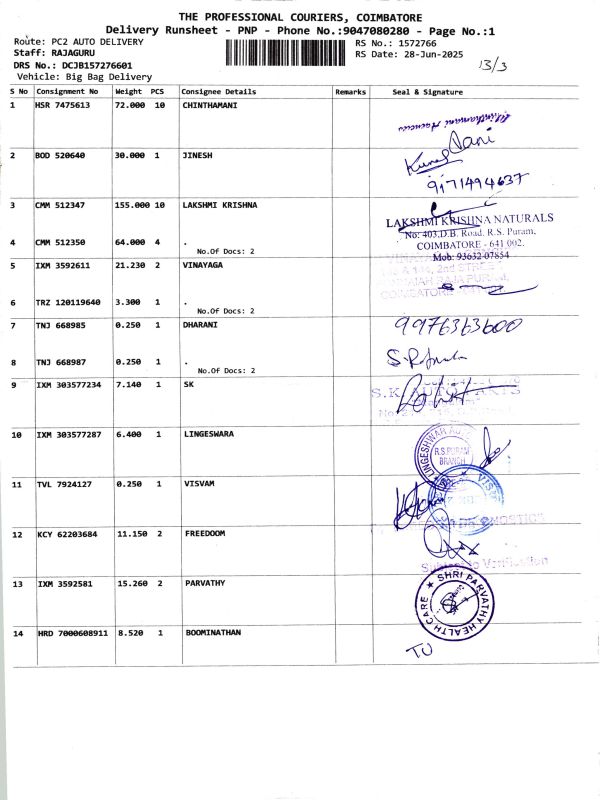 THE PROFESSIONAL COURIERS, COIMBATORE
Delivery Runsheet - PNP - Phone No.:9047080280 - Page No.:1
Route: PC2 AUTO DELIVERY
RS No.: 1572766
Staff: RAJAGURU
RS Date: 28-Jun-2025
13/3
DRS No.: DCJB157276601
Vehicle: Big Bag Delivery
S No Consignment No Weight PCS Consignee Details Remarks Seal & Signature
1 HSR 7475613 72.000 10 CHINTHAMANI
Chinthamani Agencies
Mani
2 BOD 520640 30.000 1 JINESH
9171494637
3 CMM 512347 155.000 10 LAKSHMI KRISHNA
LAKSHMI KRISHNA NATURALS
No: 403,D.B. Road, R.S. Puram,
COIMBATORE - 641 002.
Mob: 93632 07854
4 CMM 512350 64.000 4 .
No.Of Docs: 2
5 IXM 3592611 21.230 2 VINAYAGA
2nd STREET
COIMBATORE
6 TRZ 120119640 3.300 1 .
No.Of Docs: 2
7 TNJ 668985 0.250 1 DHARANI
9976363600
8 TNJ 668987 0.250 1 .
No.Of Docs: 2
9 IXM 303577234 7.140 1 SK
S.K AUTO PARTS
10 IXM 303577287 6.400 1 LINGESWARA
LINGESHWAR
R.S.PURAM
BRANCH
11 TVL 7924127 0.250 1 VISVAM
12 KCY 62203684 11.150 2 FREEDOOM
Subject to Verification
13 IXM 3592581 15.260 2 PARVATHY
SHRI PARVATHY HEALTH CARE
14 HRD 7000608911 8.520 1 BOOMINATHAN
TU